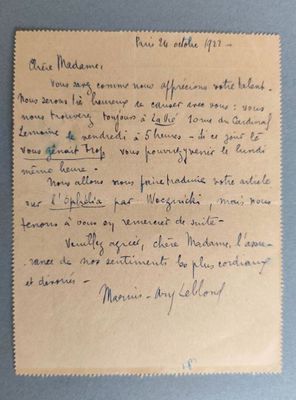 Paris 24 octobre 1922 -
Chère Madame,
Vous savez comme nous apprécions votre talent.
Nous serons très heureux de causer avec vous : vous
nous trouverez toujours à La Vie 10 rue du Cardinal
Lemoine le vendredi à 5 heures - Si ce jour là
vous gênait trop vous pourriez venir le lundi
même heure.
Nous allons nous faire traduire votre article
sur l'Ophélia par Woznicki, mais nous
tenons à vous en remercier de suite -
Veuillez agréer, chère Madame, l'assu-
rance de nos sentiments les plus cordiaux
et dévoués -
Marius-Ary Leblond